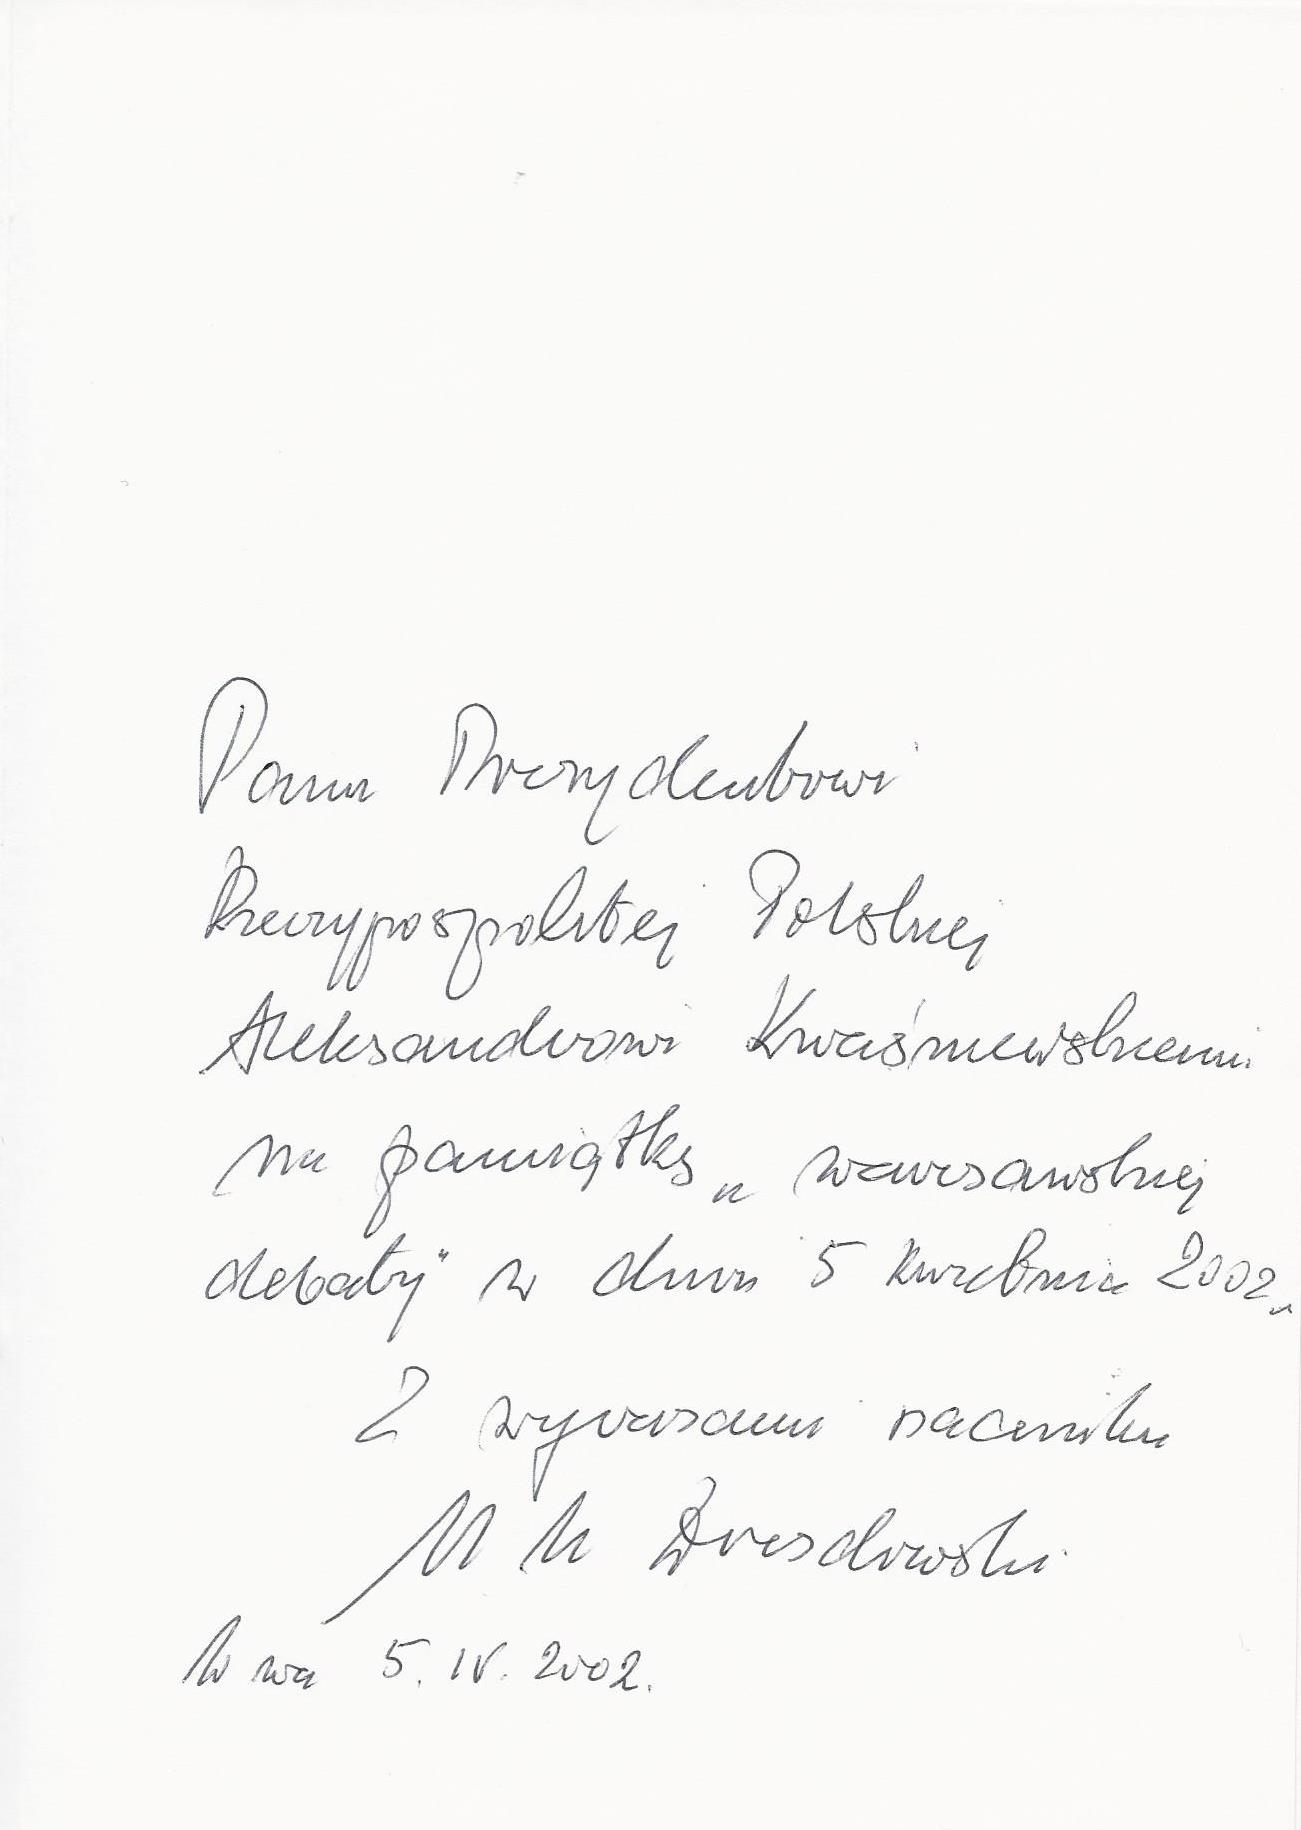 Panu Prezydentowi
Rzeczypospolitej Polskiej
Aleksandrowi Kwaśniewskiemu
na pamiątkę „warszawskiej
debaty" w dniu 5 kwietnia 2002 r
Z wyrazami szacunku
M M Drozdowski
W wa 5. IV. 2002.